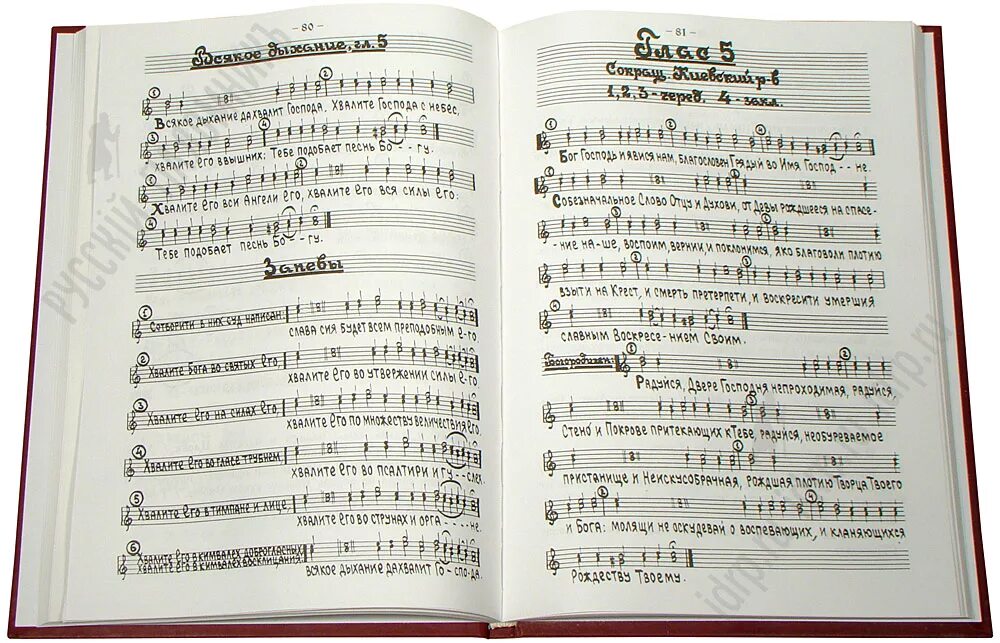 - 80 -
Всякое дыхание, гл. 5
Всякое дыхание дахвалит Господа. Хвалите Господа с небес,
хвалите Его ввышних: Тебе подобает песнь Бо - - гу.
Хвалите Его вси Ангели Его, хвалите Его вся силы Его:
Тебе подобает песнь Бо - - гу.
Запевы
Сотворити в них суд написан:
слава сия будет всем преподобным Е-го.
2 Хвалите Бога во святых Его,
хвалите Его во утвержении силы Е-го.
3 Хвалите Его на силах Его,
хвалите Его по множеству величествия Его.
4 Хвалите Его во гласе трубнем
хвалите Его во псалтири и гу - - слех.
5 Хвалите Его в тимпане и лице,
хвалите Его во струнах и орга - - - - не.
6 Хвалите Его в кимвалех доброгласных
Хвалите Его в кимвалех восклицания.
всякое дыхание дахвалит Го - спо-да.
- 81 -
Глас 5
Сокращ. Киевский р-в
1, 2, 3 - черед. 4 - закл.
Бог Господь и явися нам, благословен Грядый во Имя Господ - - не.
Собезначальное Слово Отцу и Духови, от Девы рождшееся на спасе-
-ние на-ше, воспоим, вернии, и поклонимся, яко благоволи плотию
взыти на Крест, и смерть претерпети, и воскресити умершия
славным Воскресе-нием Своим.
Богородичен:
Радуйся, Двере Господня непроходимая, радуйся,
Стено и Покрове притекающих к Тебе, радуйся, необуреваемое
пристанище и Неискусобрачная, рождшая плотию Творца Твоего
и Бога: молящи не оскудевай о воспевающих, и кланяющихся
Рождеству Твоему.
РУССКІЙ
idrp.ru